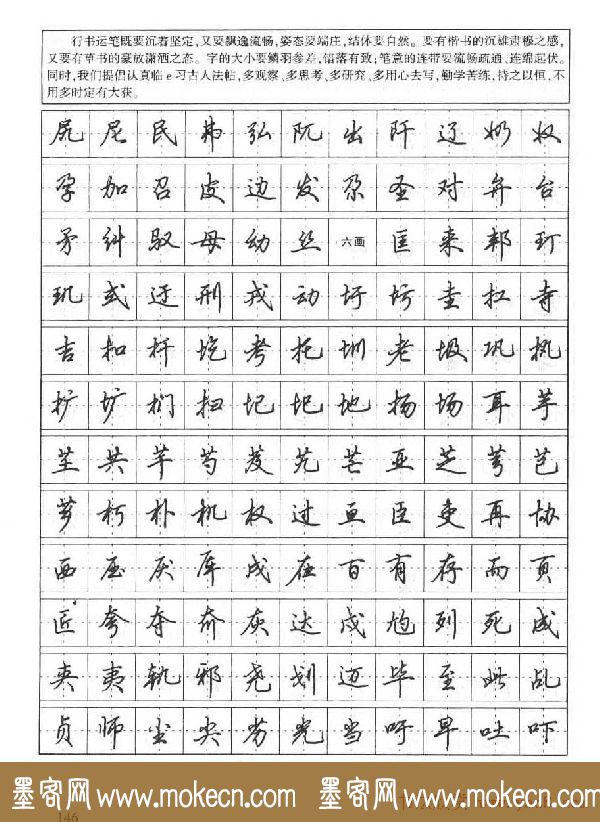 行书运笔既要沉着坚定,又要飘逸流畅,姿态要端庄,结体要自然。要有楷书的沉雄肃穆之感,
又要有草书的豪放潇洒之态。字的大小要鳞羽参差,错落有致;笔意的连带要流畅疏通、连绵起伏。
同时,我们提倡认真临e习古人法帖,多观察、多思考、多研究、多用心去写,勤学苦练,持之以恒,不
用多时定有大获。
尻 尼 民 弗 弘 阢 出 阡 辽 奶 奴
孕 加 召 皮 边 发 尕 圣 对 弁 台
矛 纠 驭 母 幼 丝 六画 匡 耒 邦 玎
玑 式 迂 刑 戎 动 圩 圬 圭 扛 寺
吉 扣 扦 圪 考 托 圳 老 圾 巩 执
扩 圹 扪 扫 圮 圯 地 扬 场 耳 芋
芏 共 芊 芍 芨 艽 芒 亚 芝 芎 芑
芗 朽 朴 机 权 过 亘 臣 吏 再 协
西 压 厌 厍 戍 在 百 有 存 而 页
匠 夸 夺 夼 灰 达 戍 尥 列 死 成
夹 夷 轨 邪 尧 划 迈 毕 至 此 乩
贞 师 尘 尖 劣 光 当 吁 早 吐 吓
墨客网www.mokecn.com 墨客网www.mokecn.com
146